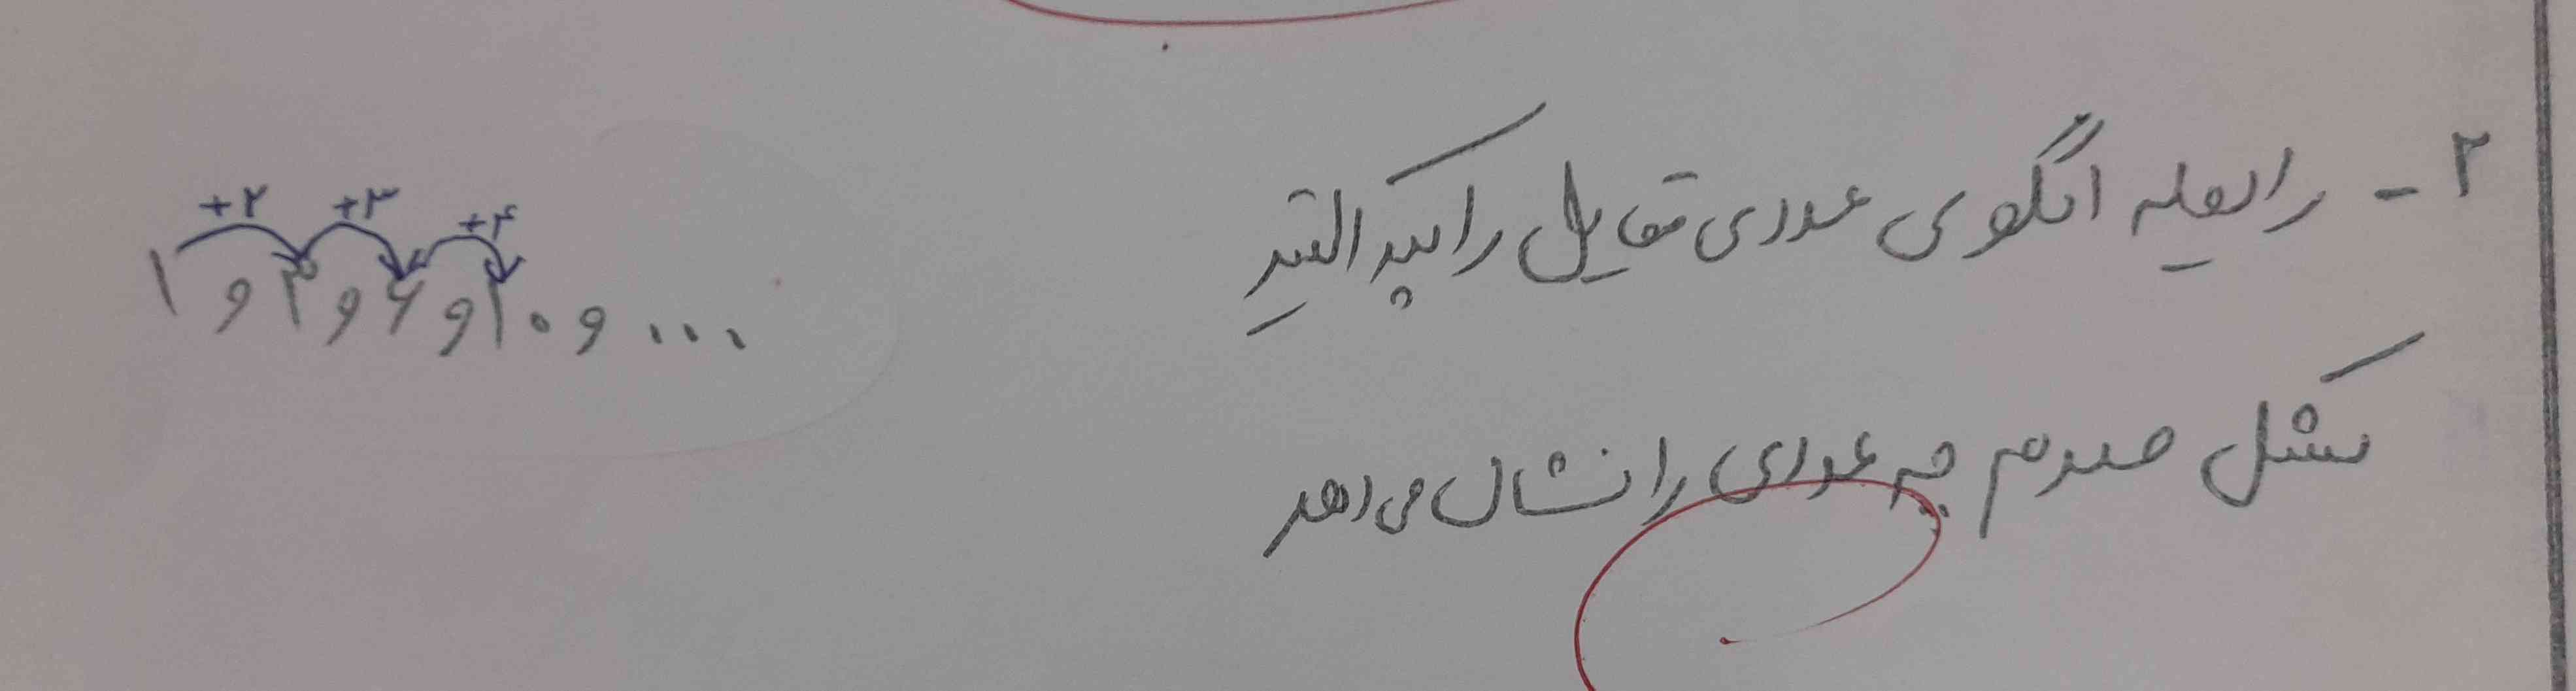 ۲ - رابطه الگوی عددی مقابل را پیدا کنید
+۲ +۳ +۴
۱ و ۳ و ۶ و ۱۰ و ...
شکل صدم چه عددی را نشان می‌دهد